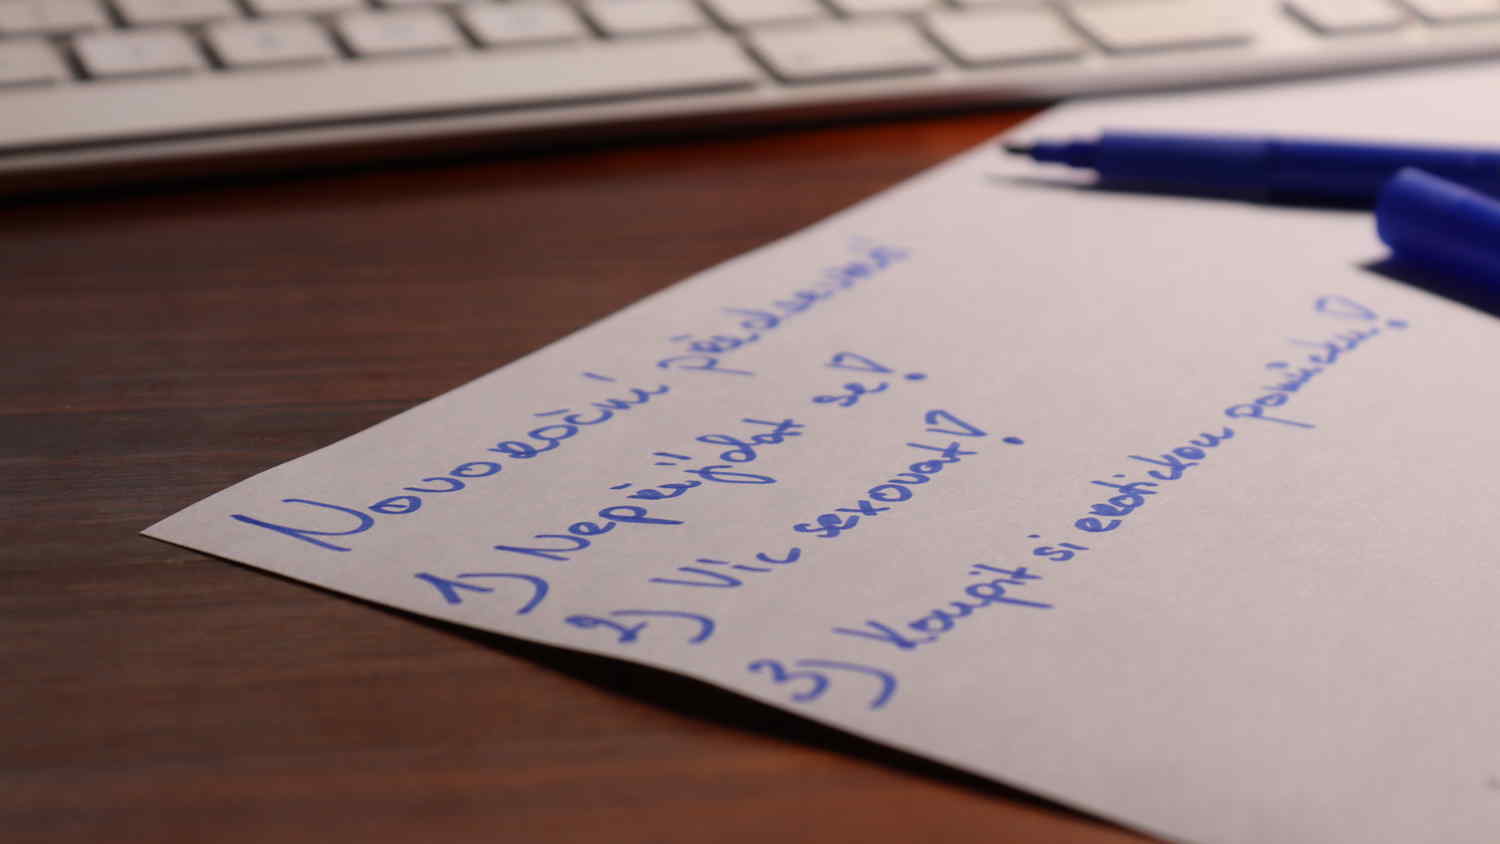 Novoroční předsevzetí
1) Nepřijdat se!
2) Víc sexovat!
3) Koupit si erotickou pomůcku!